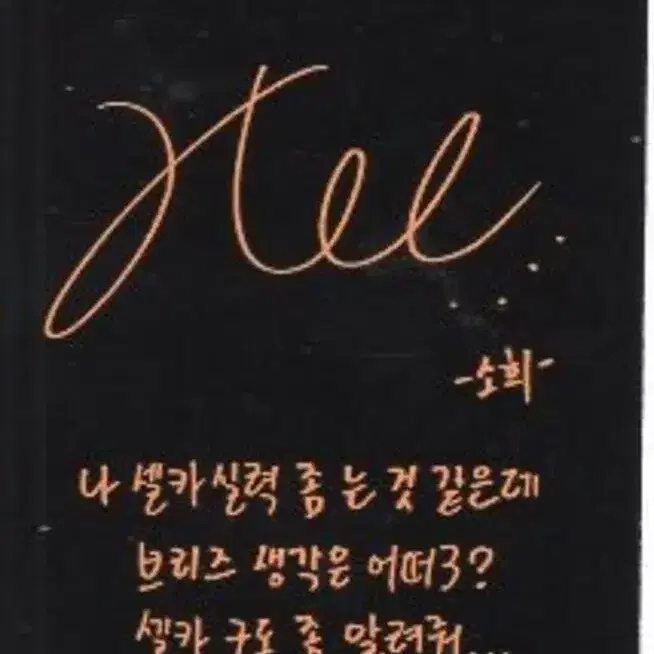 Hee
-소희-
나 셀카 실력 좀 는 것 같은데
브리즈 생각은 어떠3?
셀카 구도 좀 알려줘...